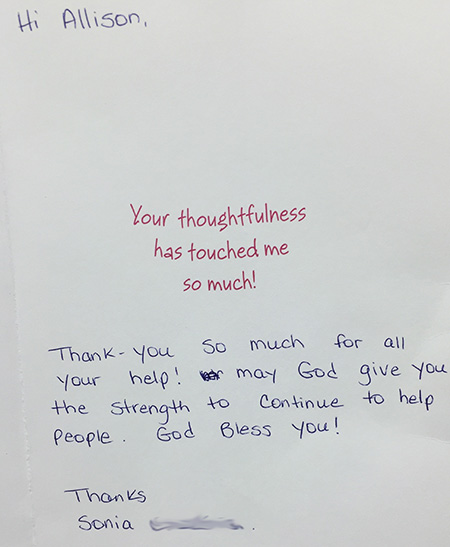 Hi Allison,
Your thoughtfulness
has touched me
so much!
Thank-you so much for all
your help! may God give you
the strength to continue to help
people. God Bless you!
Thanks
Sonia